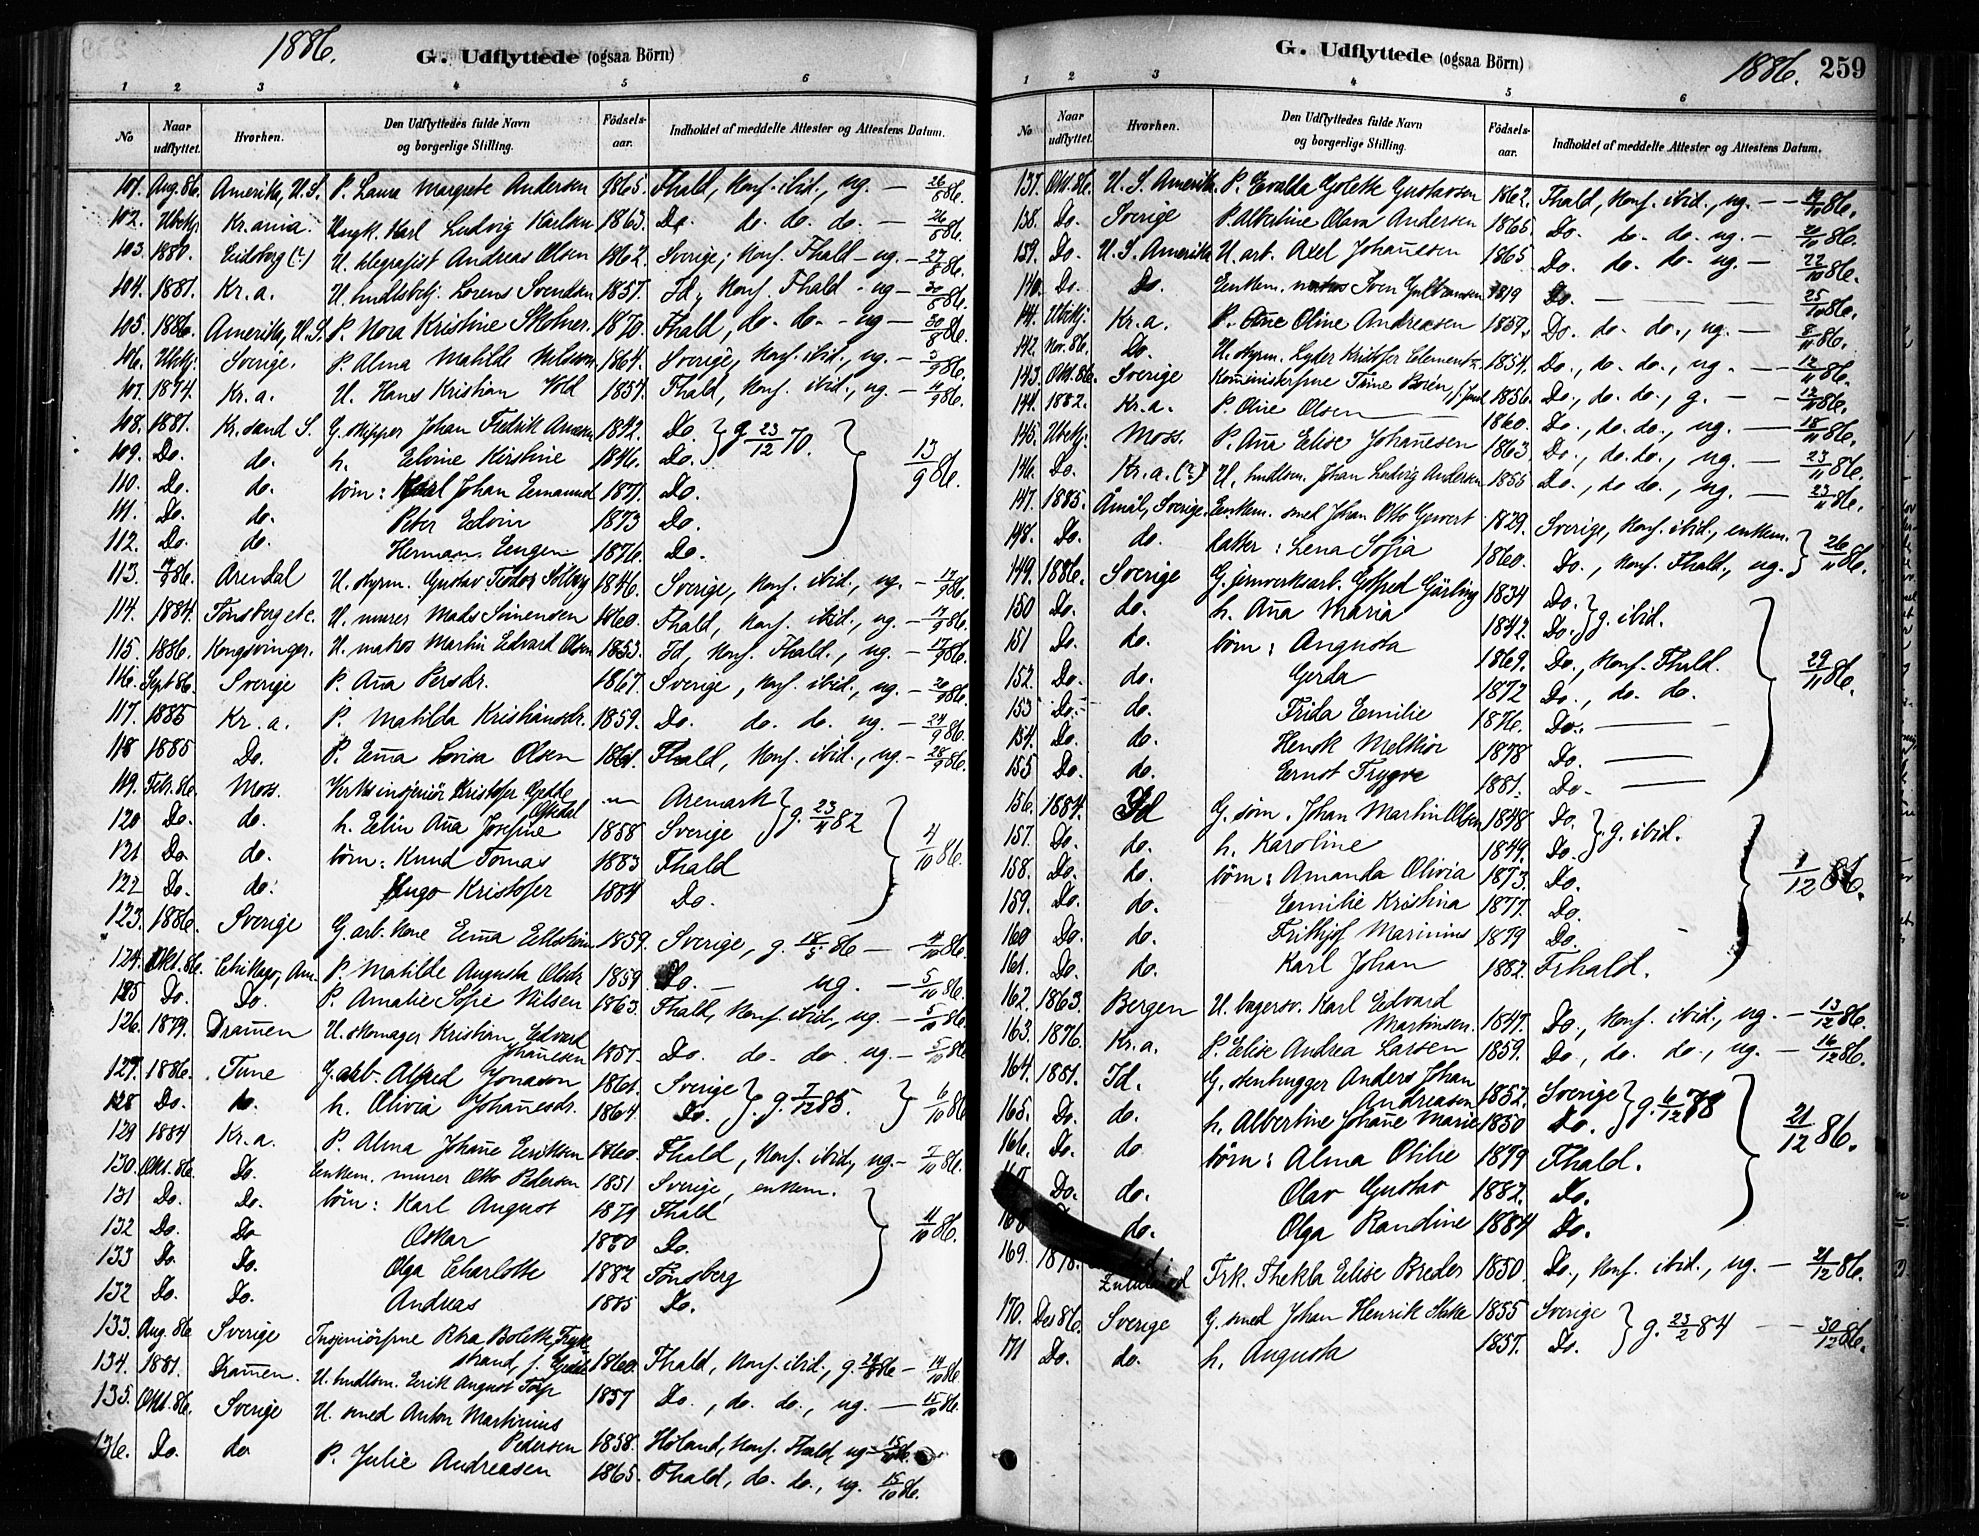 1886.
G. Udflyttede (ogsaa Börn)
1 2 3 4 5 6
No Naar udflyttet. Hvorhen. Den Udflyttedes fulde Navn og borgerlige Stilling. Födsels-aar. Indholdet af meddelte Attester og Attestens Datum.
101. Aug. 86. Amerika, U.S. P. Laura Margrete Andersen 1865. Fhald, Konf. ibid., ug. — 26/8 86.
102. Ubekj. Kr.ania. Ungk. Karl Ludvig Karlsen 1863. Do. do. do. do. — 26/8 86.
103. 1880. Eidsberg (?) U. telegrafist Andreas Olsen 1862. Sverige, Konf. Fhald - ug. - 27/8 86.
104. 1881. Kr.a. U. hndlsbtj. Lorens Svendsen 1857. Id, Konf. Fhald - ug - 30/8 86.
105. 1886. Amerika, U.S. P. Nora Kristine 1870. Fhald, do. do. - ug - 30/8 86.
106. Ubekj. Sverige. P. Alma Matilde Nilsson 1864. Sverige, Konf. ibid., ug. - 3/9 86.
107. 1874. Kr.a. U. Hans Kristian Vold 1857. Fhald, Konf. ibid., ug - 11/9 86.
108. 1881. Kr.sand S. G. skipper Johan Fredrik Arnesen 1842. Do. } g. 23/12 70. } 13/9 86.
109. Do. do. h. Elvine Kirstine 1846. Do.
110. Do. do. börn: Karl Johan Emanuel 1871. Do.
111. Do. do. Peter Edvin 1873 Do.
112. Do. do. Herman Eugen 1876. Do.
113. 17/9 86. Arendal U. styrm. Gustav Teodor Solberg 1846. Sverige, Konf. ibid., ug. - 17/9 86.
114. 1884. Tønsberg etc. U. murer Mads Simensen 1860. Fhald, Konf. ibid., ug. - 17/9 86.
115. 1886. Kongsvinger. U. matros Martin Edvard Olsen 1853. Id, Konf. Fhald., ug. - 17/9 86.
116. Sept 86. Sverige P. Aña Persdr. 1867. Sverige, Konf. ibid., ug. - 20/9 86.
117. 1885 Kr.a. P. Matilda Kristiansdr. 1859. Do. do. do. ug. - 24/9 86.
118 1885 Do. P. Em̃a Lovisa Olsen 1861. Fhald, Konf. ibid., ug. - 28/9 86.
119. Febr. 86. Moss. Verksinsjeniör Kristofer Gedde — Aremark } g. 23/11 82 } 4/10 86.
120 Do. do. h. Elin Aña Josefine 1858 Sverige
121 Do. do. börn: Knud Tomas 1883 Fhald
122 Do. do. Hugo Kristofer 1884 Do.
123. 1886. Sverige G. arb. kone Em̃a 1859. Sverige, g. 18/5 86 — 4/10 86.
124. Okt. 86. Chikago, Am. P. Matilde Augusta Olsdr. 1859 Do. — ug. — 5/10 86.
125 Do. Do. P. Amalie Sofie Nilsen 1863. Fhald, Konf. ibid., ug. - 5/10 86.
126. 1879. Dram̃en U. skomager Kristian Edvard
Johañesen 1857. Do. do. do. ug. - 5/10 86.
127. 1886. Tune G. arb. Alfred Jonason 1861. Sverige } g. 7/12 85. } 6/10 86.
128 Do. do. h. Olivia Johañesdr. 1864 Do.
129 1884 Kr.a. P. Alma Johañe Eriksen 1860. Fhald, Konf. ibid., ug. - 7/10 86.
130. Okt. 86. Do. Enkem. murer Otto Pedersen 1851 Sverige, enkem. } 11/10 86.
131 Do. Do. börn: Karl August 1879 Fhald
132 Do. Do Oskar 1880 Do.
133 Do. Do. Olga Charlotte 1882 Tønsberg
132 Do. Do. Andreas 1885 Do.
133. Aug. 86 Sverige Insjeniörfrue Bolette
strand f. Gedde 1860. Fhald, Konf. ibid., g. — 14/10 86.
134. 1881. Dram̃en. U. hndlsm. Erik August Torp 1857 Do., do. do., ug. — 15/10 86.
135. Okt. 86. Sverige U. smed Anton Martinius
Pedersen 1858. Høland, Konf. Fhald, ug - 15/10 86.
136. Do. do P. Julie Andreasen 1865. Fhald, do. do., ug. 15/10 86.
G. Udflyttede (ogsaa Börn)
1886. 259
1 2 3 4 5 6
No Naar udflyttet. Hvorhen. Den Udflyttedes fulde Navn og borgerlige Stilling. Födsels-aar. Indholdet af meddelte Attester og Attestens Datum.
137. Okt. 86. U.S. Amerika P. Evalda Golette Gustavsen 1862. Fhald, Konf. ibid., ug. — 19/10 86.
138. Do. Sverige P. Albertine Olava Andersen 1865. Do. do. do. ug. — 21/10 86.
139. Do. U.S. Amerika U. arb. Axel Johañesen 1865 Do. do. do. ug. — 22/10 86.
140. Do. Do. Enkem. Sven Gulbransen 1819 Do. — — 25/10 86.
141. Ubekj. Kr.a. P. Oline Andreasen 1859. Do. do. do., ug. — 8/11 86.
142. Nov. 86. Do. U. styrm. Lyder Kristofer Clementz 1854. Do., do. do., ug. — 12/11 86.
143. Okt. 86. Sverige Kom̃inisterfrue 1856. Do., do. do., g. — 12/11 86.
144. 1882. Kr.a. P. Oline Olsen 1860. Do., do. do., ug. — 18/11 86.
145. Ubekj. Moss. P. Aña Elise Johañesen 1863 Do., do. do., ug. — 23/11 86.
146. Do. Kr.a. (?) U. hndlsm. Johan Ludvig Andersen 1855 Do., do do., ug. — 23/11 86.
147. 1885. Åmål, Sverige. Enkem. smed Johan Otto 1829. Sverige, Konf. ibid., enkem. } 26/11 86.
148. Do. do. datter: Lena Sofia 1860. Do., Konf. Fhald., ug.
149. 1886. Sverige G. jernverksarb. Gotfred Gärling 1834 Do. } g. ibid. } 29/11 86.
150 Do. do. h. Aña Maria 1842. Do.
151 Do. do. börn: Augusta 1869. Do., Konf. Fhald.
152. Do. do. Gerda 1872 Do., do. do.
153 Do. do. Frida Emilie 1876. Do. —
154. Do. do. Henrik Melkior 1878 Do. —
155 Do. do. Ernst Trygve 1881. Do. —
156. 1884. Id G. söm. Johan Martin Olsen 1848 Do. } g. ibid. } 1/12 86.
157. Do. do. h. Karoline 1849. Do.
158. Do. do. börn: Amanda Olivia 1873. Do.
159. Do. do. Emilie Kristina 1877. Do.
160 Do. do. Frithjof Marinius 1879 Do.
161. Do. do. Karl Johan 1882. Frhald.
162. 1863. Bergen U. bagersv. Karl Edvard
Martinsen. 1847. Do., Konf. ibid., ug. - 13/12 86.
163. 1876. Kr.a. P. Elise Andrea Larsen 1859. Do., do. do., ug. - 16/12 86.
164. 1881. Id. G. stenhugger Anders Johan
Andreasen 1852. Sverige } g. 6/12 78 } 21/12 86.
165. Do. do. h. Albertine Johañe Marie 1850 Do.
166. Do. do börn: Alma Otilie 1879 Fhald.
167 Do. do. Olav Gustav 1882. Do.
168 do. Olga Randine 1884 Do.
169. 1878. Frk. Thekla Elise Breder 1850. Do., Konf. ibid., ug. — 21/12 86.
170. Des 86. Sverige G. smed Johan Henrik 1855 Sverige } g. 23/2 84 — 30/12 86.
171 Do. do. h. Augusta 1857. Do.